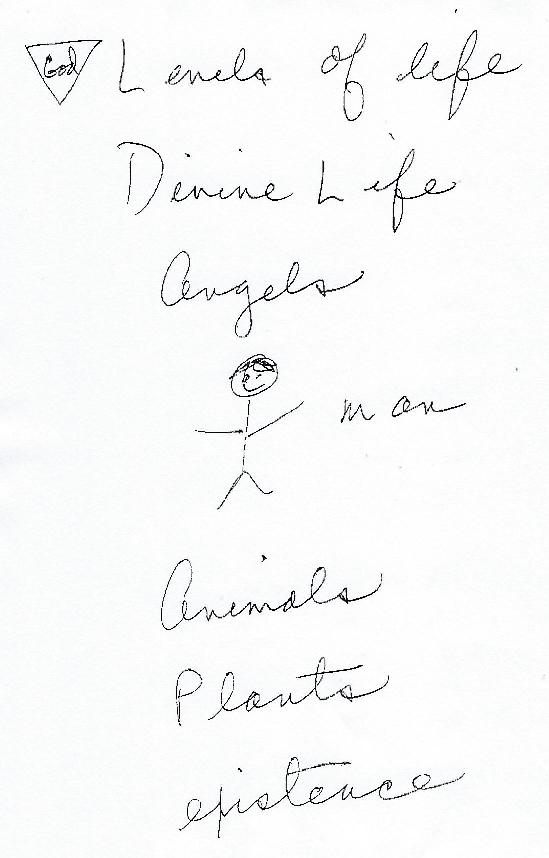 God Levels of life
Divine Life
Angels
man
Animals
Plants
existence